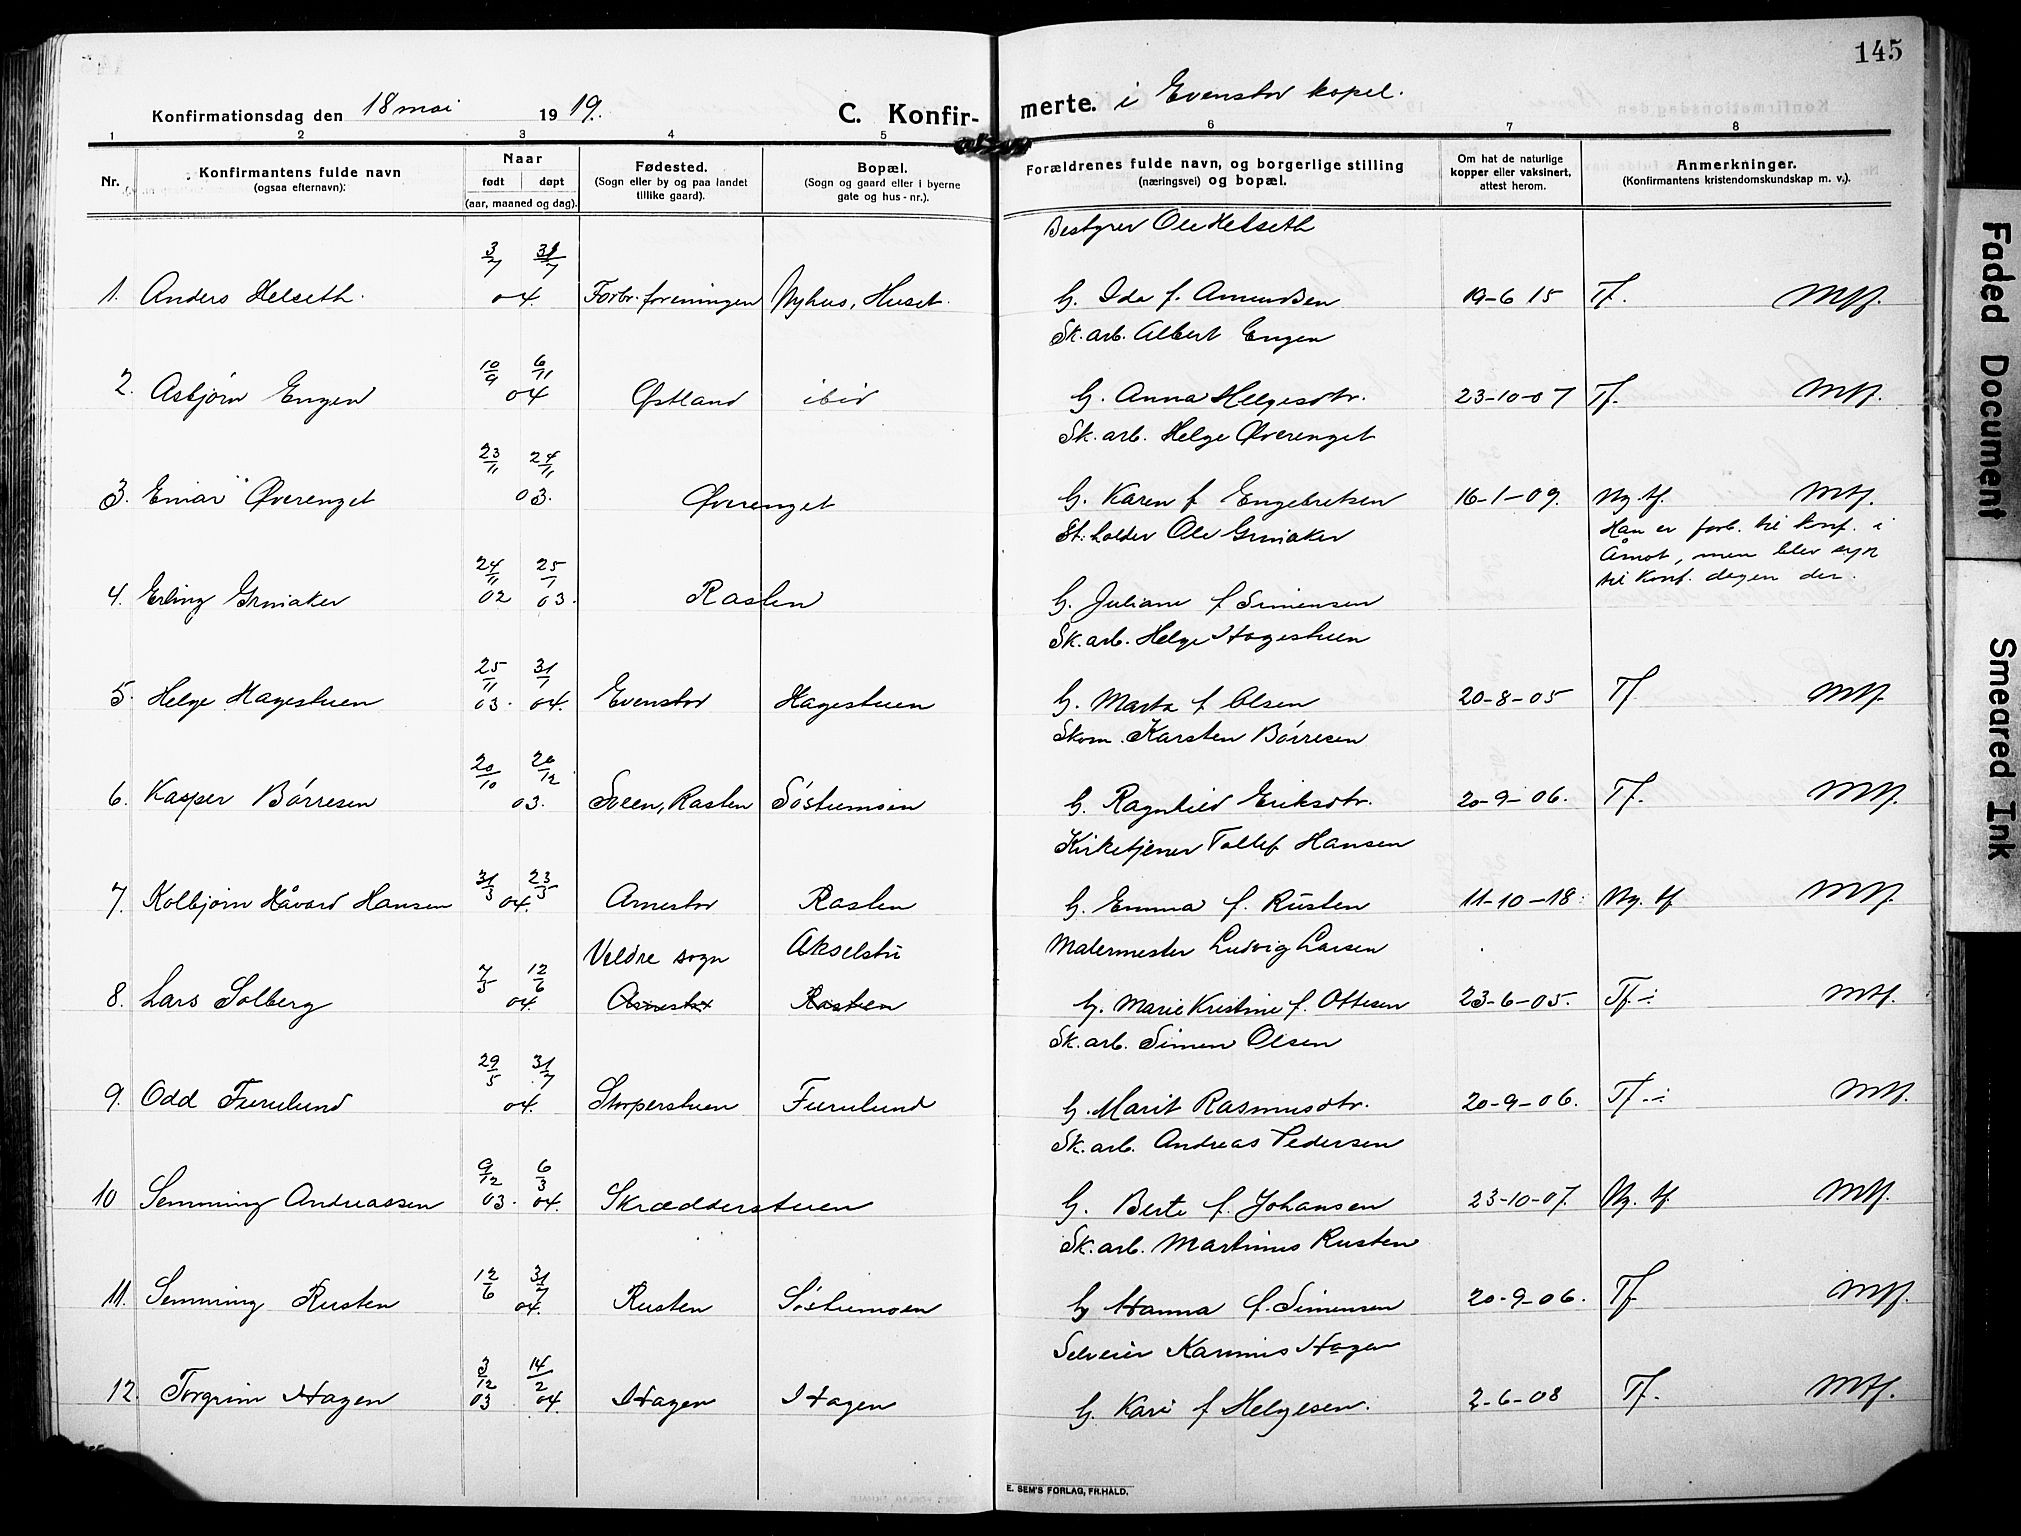 145
Konfirmationsdag den 18 mai 1919. C. Konfir-merte. i Evenstad kapel.
1 2 3 4 5 6 7 8
Nr. Konfirmantens fulde navn (ogsaa efternavn): Naar født døpt (aar, maaned og dag). Fødested. (Sogn eller by og paa landet tillike gaard). Bopæl. (Sogn og gaard eller i byerne gate og hus-nr.). Forældrenes fulde navn, og borgerlige stilling (næringsvei) og bopæl. Om hat de naturlige kopper eller vaksinert, attest herom. Anmerkninger. (Konfirmantens kristendomskundskap m. v.).
Bestyrer Ole Helseth
1. Anders Helseth. 3/7 31/7 04. Forbr.foreningen Nyhus, Huset. G. Ida f. Amundsen 19-6 15 Tf. Mtf.
Sk.arb. Albert Engen
2. Asbjørn Engen 10/9 6/11 04 Østland ibid G. Anna Helgesdtr. 23-10-07 Tf. Mtf.
Sk.arb. Helge Øverenget
3. Einar Øverenget 23/11 24/11 03. Øverenget G. Karen f Engebretsen 16-1-09. Ng. tf. Mtf.
St.holder Ole Grinaker
Han er forb. til konf. i
Åmot, men blev syk
til konf. dagen der.
4. Erling Grinaker 24/11 02 25/1 03. Rasten G. Juliane f Simensen
Sk.arb. Helge Hagestuen
5. Helge Hagestuen 25/11 03. 31/1 04. Evenstad Hagestuen G. Marta f Olsen 20-8-05 Tf Mtf.
Skom. Karsten Børresen
6. Kasper Børresen 20/10 20/12 03. Sveen, Rasten Søstumoen G. Ragnhild Eriksdtr. 20-9-06. Tf. Mtf.
Kirketjener Tollef Hansen
7. Kolbjørn Håvard Hansen 31/3 23/5 04. Arnestad Rasten G. Emma f. Rusten 11-10-18. Ng. tf Mtf.
Veldre sogn Akselstu Malermester Ludvig Larsen
8. Lars Solberg 7/5 12/6 04. Arnestad Rasten G. Marie Kristine f. Ottesen 23-6-05. Tf-: Mtf.
Sk.arb. Simen Olsen
9. Odd Furulund 29/5 31/7 04. Storperstuen Furulund G. Marit Rasmusdtr. 20-9-06. Tf.-: Mtf.
Sk.arb. Andreas Pedersen
10 Semming Andreassen 9/12 03. 6/3 04. Skrædderstuen G. Berte f. Johansen 23-10-07. Ng. tf Mtf.
Sk.arb. Martinus Rusten
11. Semming Rusten 12/6 31/7 04. Rusten Søstumoen G Hanna f. Simensen 20-9-06. Tf Mtf.
Selveier Karinus Hagen
12. Torgrim Hagen 3/12 03 14/2 04. Hagen Hagen G. Kari f Helgesen. 2-6-08 Tf. Mtf.
E. SEM'S FORLAG, FR.HALD.
Faded Document
Smeared Ink